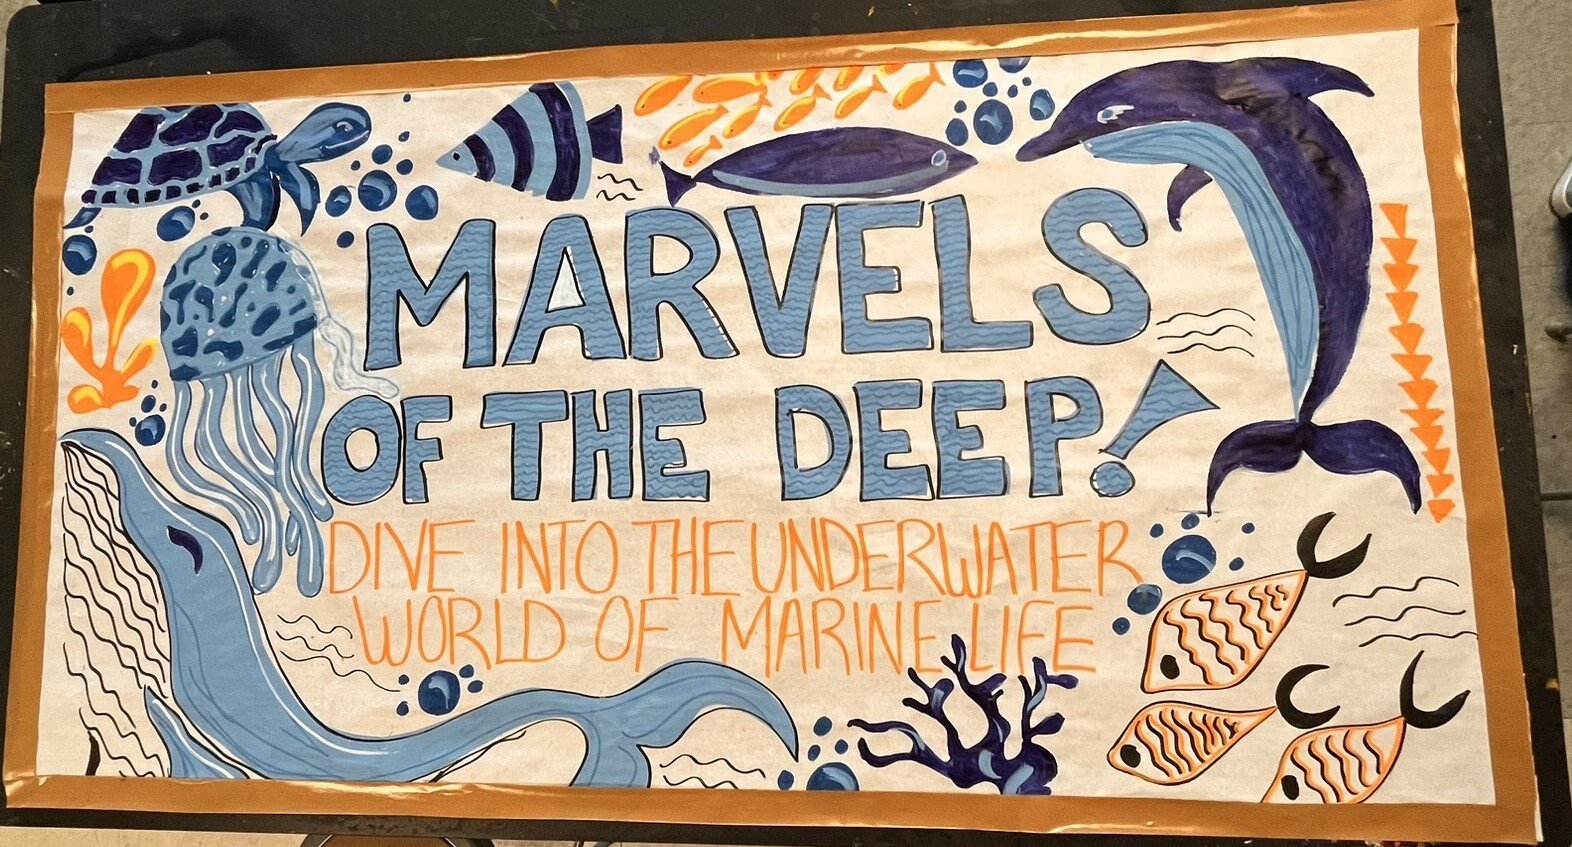 MARVELS
OF THE DEEP!
DIVE INTO THE UNDERWATER
WORLD OF MARINE LIFE